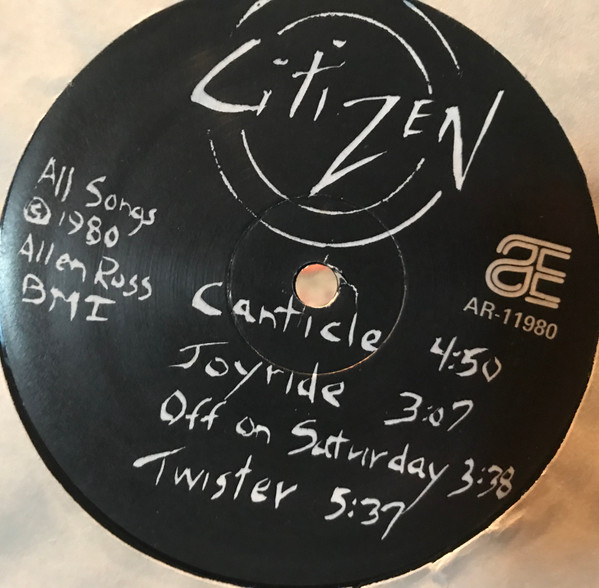 CitiZEN
All Songs
Ⓢ 1980
Allen Ross
BMI
AR-11980
Canticle 4:50
Joyride 3:07
Off on Saturday 3:38
Twister 5:37